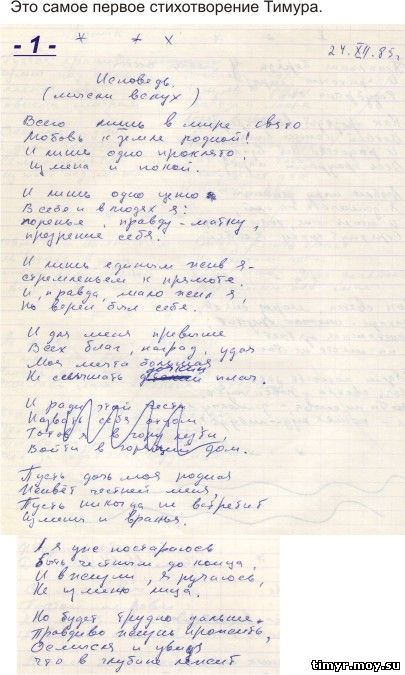 Это самое первое стихотворение Тимура.
- 1 -
* * *
24.XII.85г.
Исповедь.
(мысли вслух)
Всего лишь в мире свято
Любовь к земле родной!
И лишь одно проклято:
Измена и покой.
И лишь одно ценю
В себе и в людях я:
горенье, правду-матку,
презрение себя.
И лишь единым жив я -
стремленьем к прямоте.
И, правда, мало жил я,
Но верен был себе.
И для меня превыше
Всех благ, наград, удач
Моя мечта большая
Не слышать плач.
И ради этой чести
Назвать себя отцом
Готов я в гору идти,
Войти в горящий дом.
Пусть дочь моя родная
Живёт честней меня,
Пусть никогда не встретит
Измены и вранья.
А я уже постараюсь
Быть честным до конца,
И в жизни, я ручаюсь,
Не изменю лица.
Но будет трудно дальше
Правдиво жизнь прожить,
и увидь
что в глубине лежит
timyr.moy.su